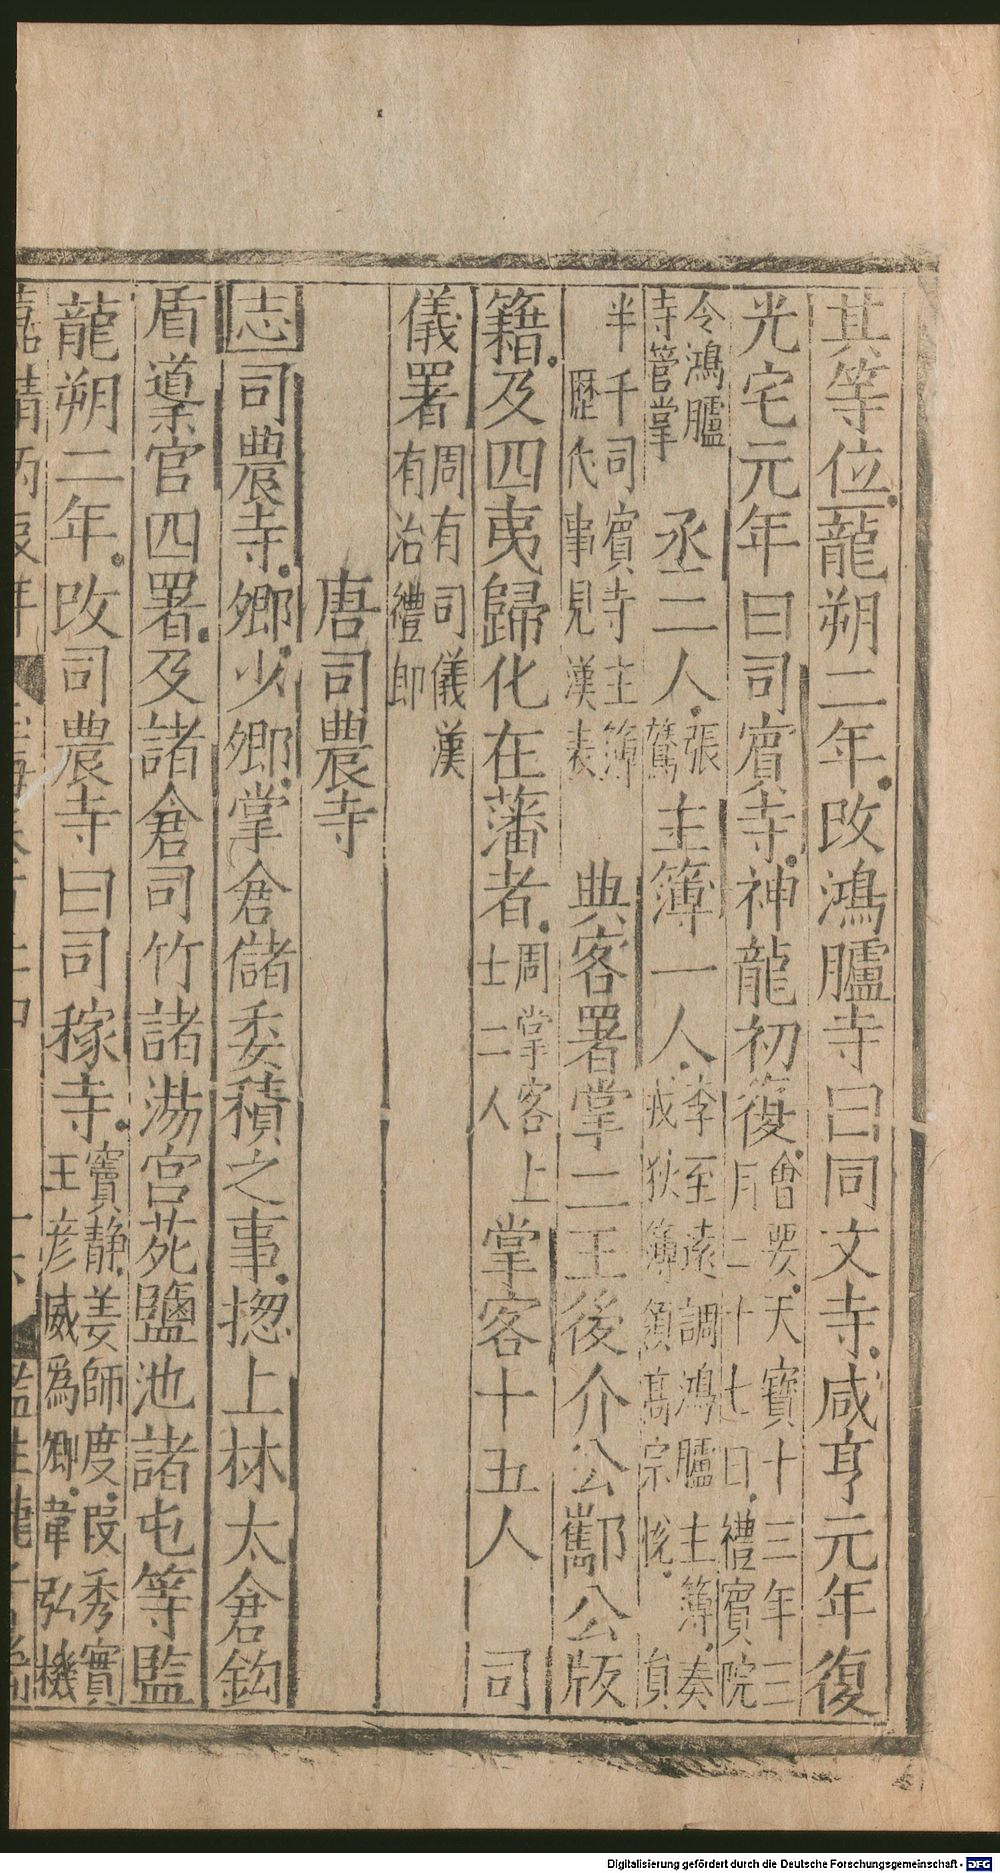 其等位龍朔二年改鴻臚寺曰同文寺咸亨元年復
光宅元年曰司賓寺神龍初復會要天寶十三年三月二十七日禮賓院
令鴻臚寺管掌丞二人張鷟主簿一人李至遠調鴻臚主簿奏戎狄簿領高宗悅員
半千司賓寺主簿歷代事見漢表典客署掌二王後介公酅公版
籍及四夷歸化在藩者周掌客上士二人掌客十五人司
儀署周有司儀漢有治禮郎
唐司農寺
志司農寺卿少卿掌倉儲委積之事揔上林太倉鈎
盾導官四署及諸倉司竹諸湯宮苑鹽池諸屯等監
龍朔二年改司農寺曰司稼寺竇靜姜師度段秀實王彥威為卿韋弘機
嘉靖丙辰年
監生
Digitalisierung gefördert durch die Deutsche Forschungsgemeinschaft - DFG